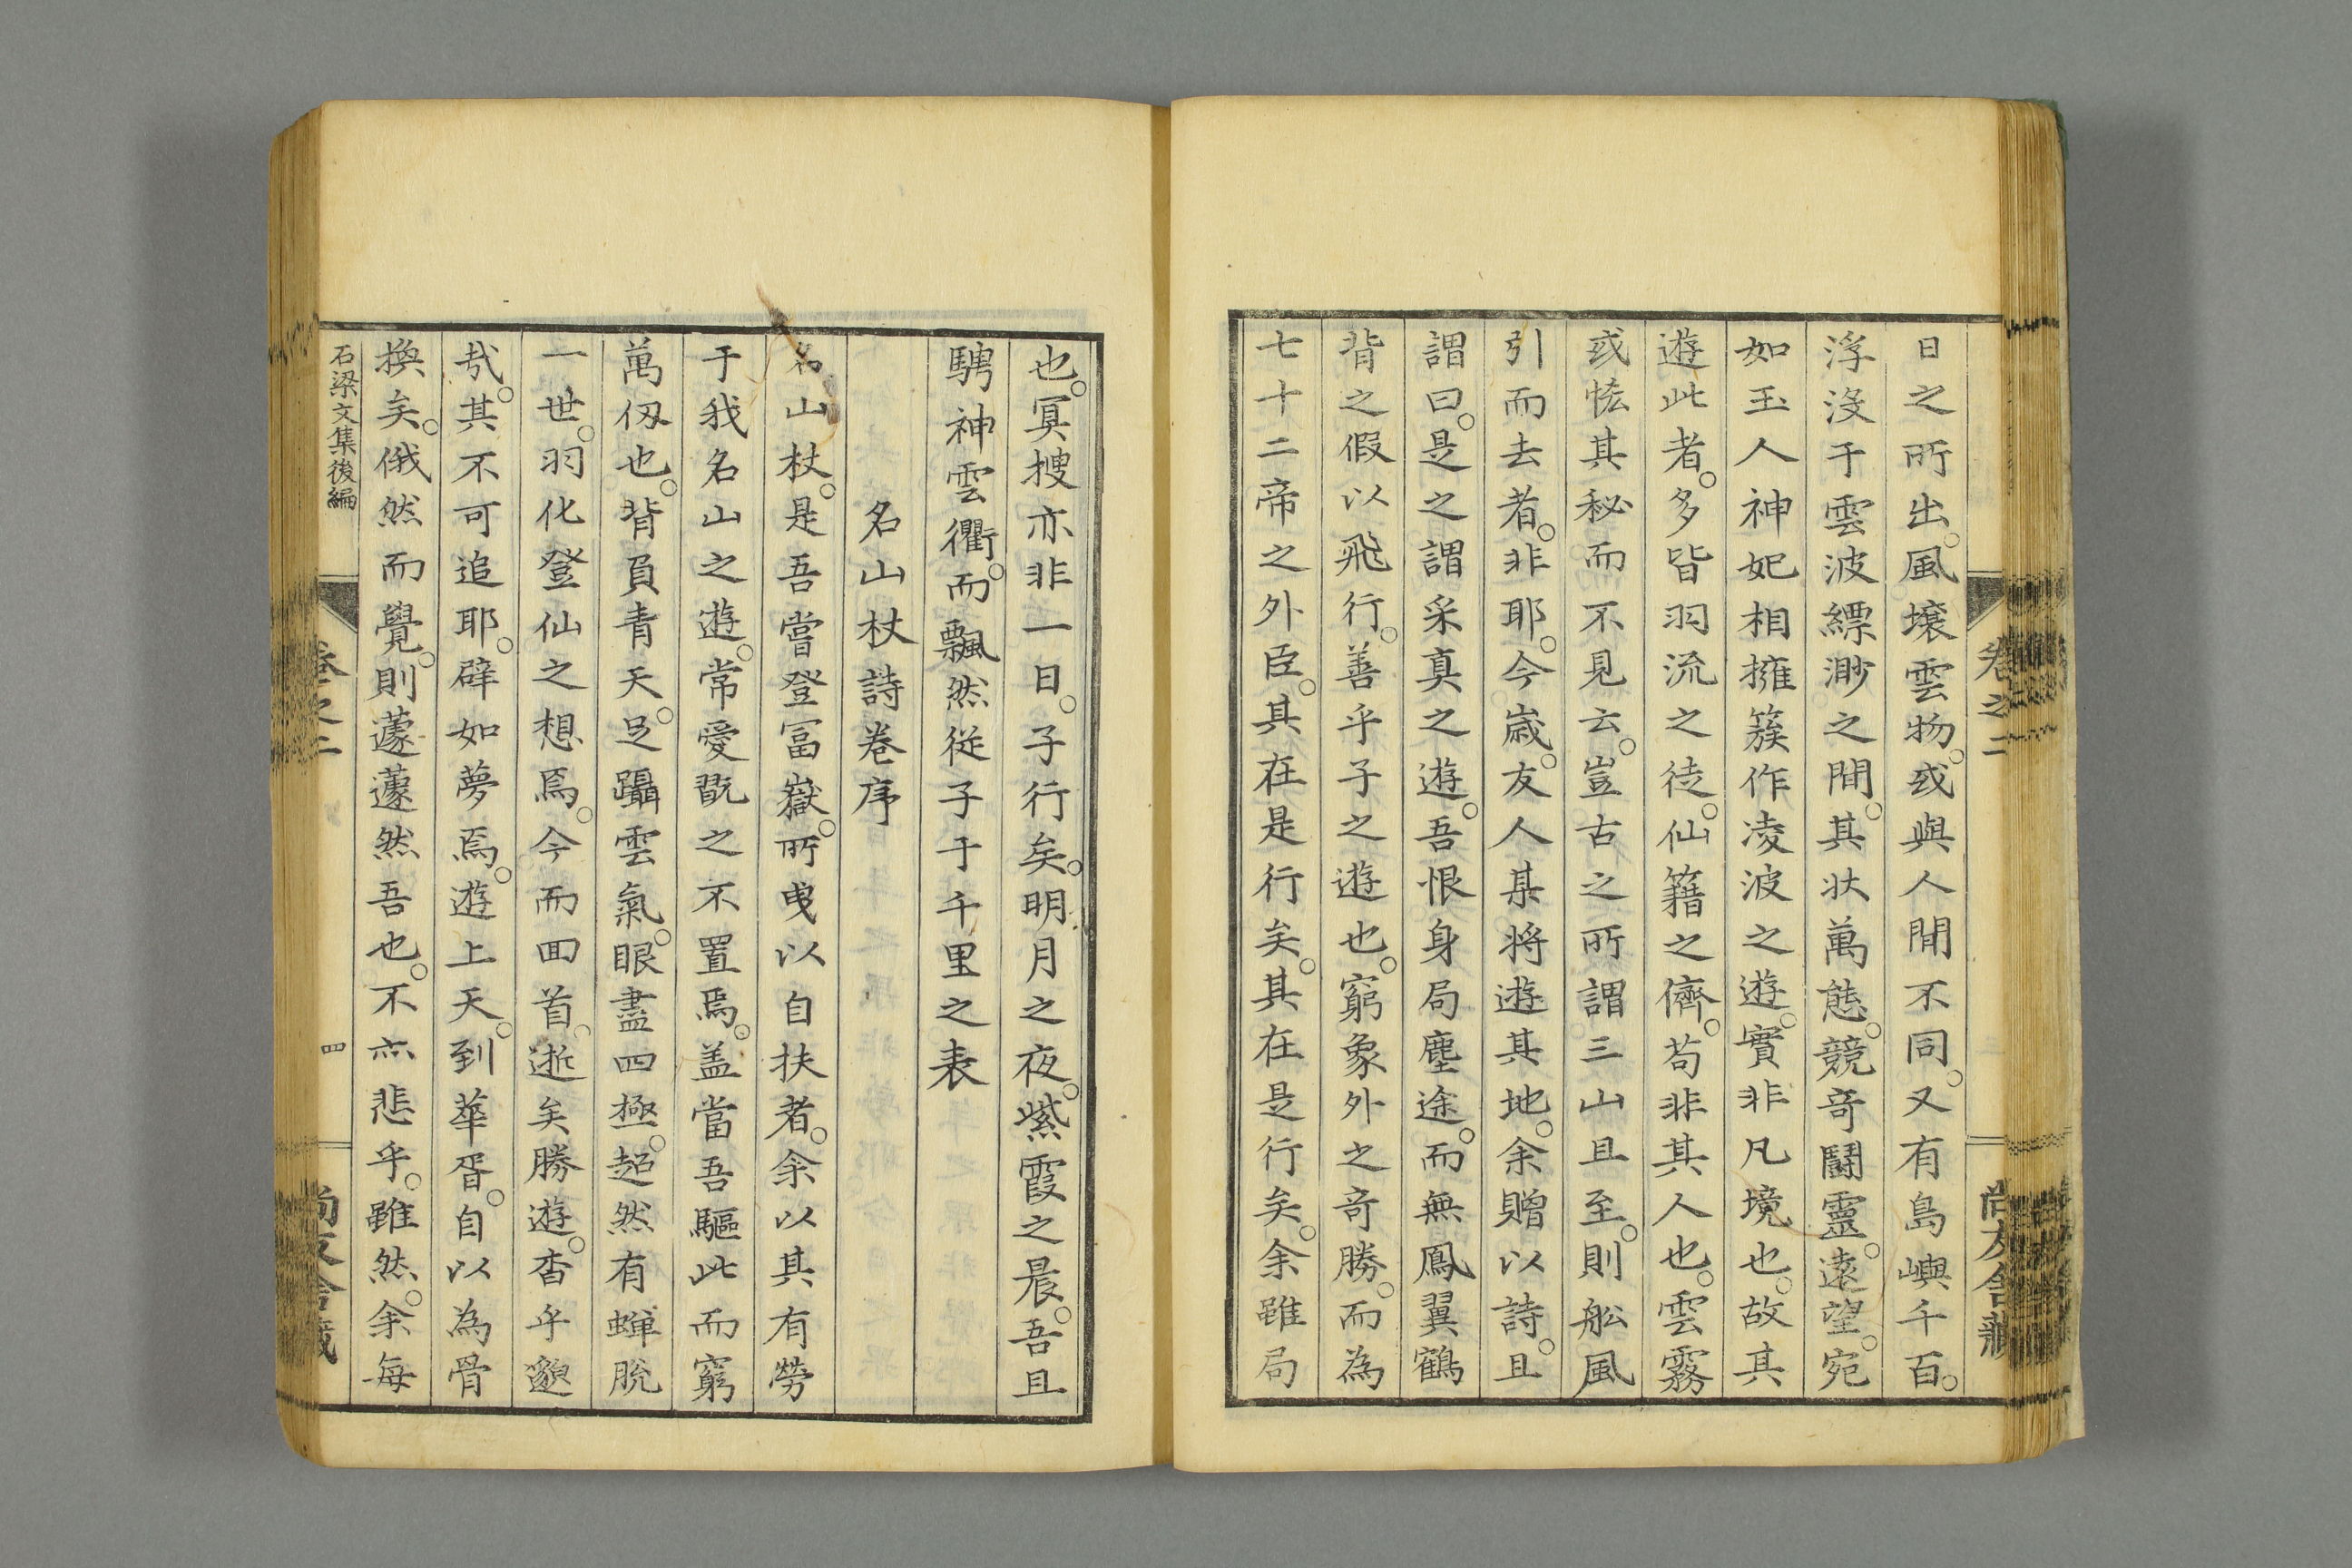 卷之二
尚友舎藏
日之所出。風壤雲物。或與人間不同。又有島嶼千百。
浮沒于雲波縹渺之間。其狀萬態。競奇鬪靈。遠望。宛
如玉人神妃相擁簇作凌波之遊。實非凡境也。故其
遊此者。多皆羽流之徒。仙籍之儕。苟非其人也。雲霧
或恠其秘而不見云。豈古之所謂三山且至。則舩風
引而去者。非耶。今歲。友人某将遊其地。余贈以詩。且
謂曰。是之謂采真之遊。吾恨身局塵途。而無鳳翼鶴
背之假以飛行。善乎子之遊也。窮象外之奇勝。而為
七十二帝之外臣。其在是行矣。其在是行矣。余雖局
也。冥搜亦非一日。子行矣。明月之夜。紫霞之晨。吾且
騁神雲衢。而飄然從子于千里之表
名山杖詩卷序
名山杖。是吾嘗登冨嶽。所曳以自扶者。余以其有勞
于我名山之遊。常愛翫之不置焉。盖當吾驅此而窮
萬仭也。背負青天。足躡雲氣。眼盡四極。超然有蝉脫
一世。羽化登仙之想焉。今而回首。逝矣勝遊。杳乎邈
㢤。其不可追耶。辟如夢焉。遊上天。到華胥。自以為骨
換矣。俄然而覺。則蘧蘧然吾也。不亦悲乎。雖然。余每
石梁文集後編
卷之二
四
尚友舎藏